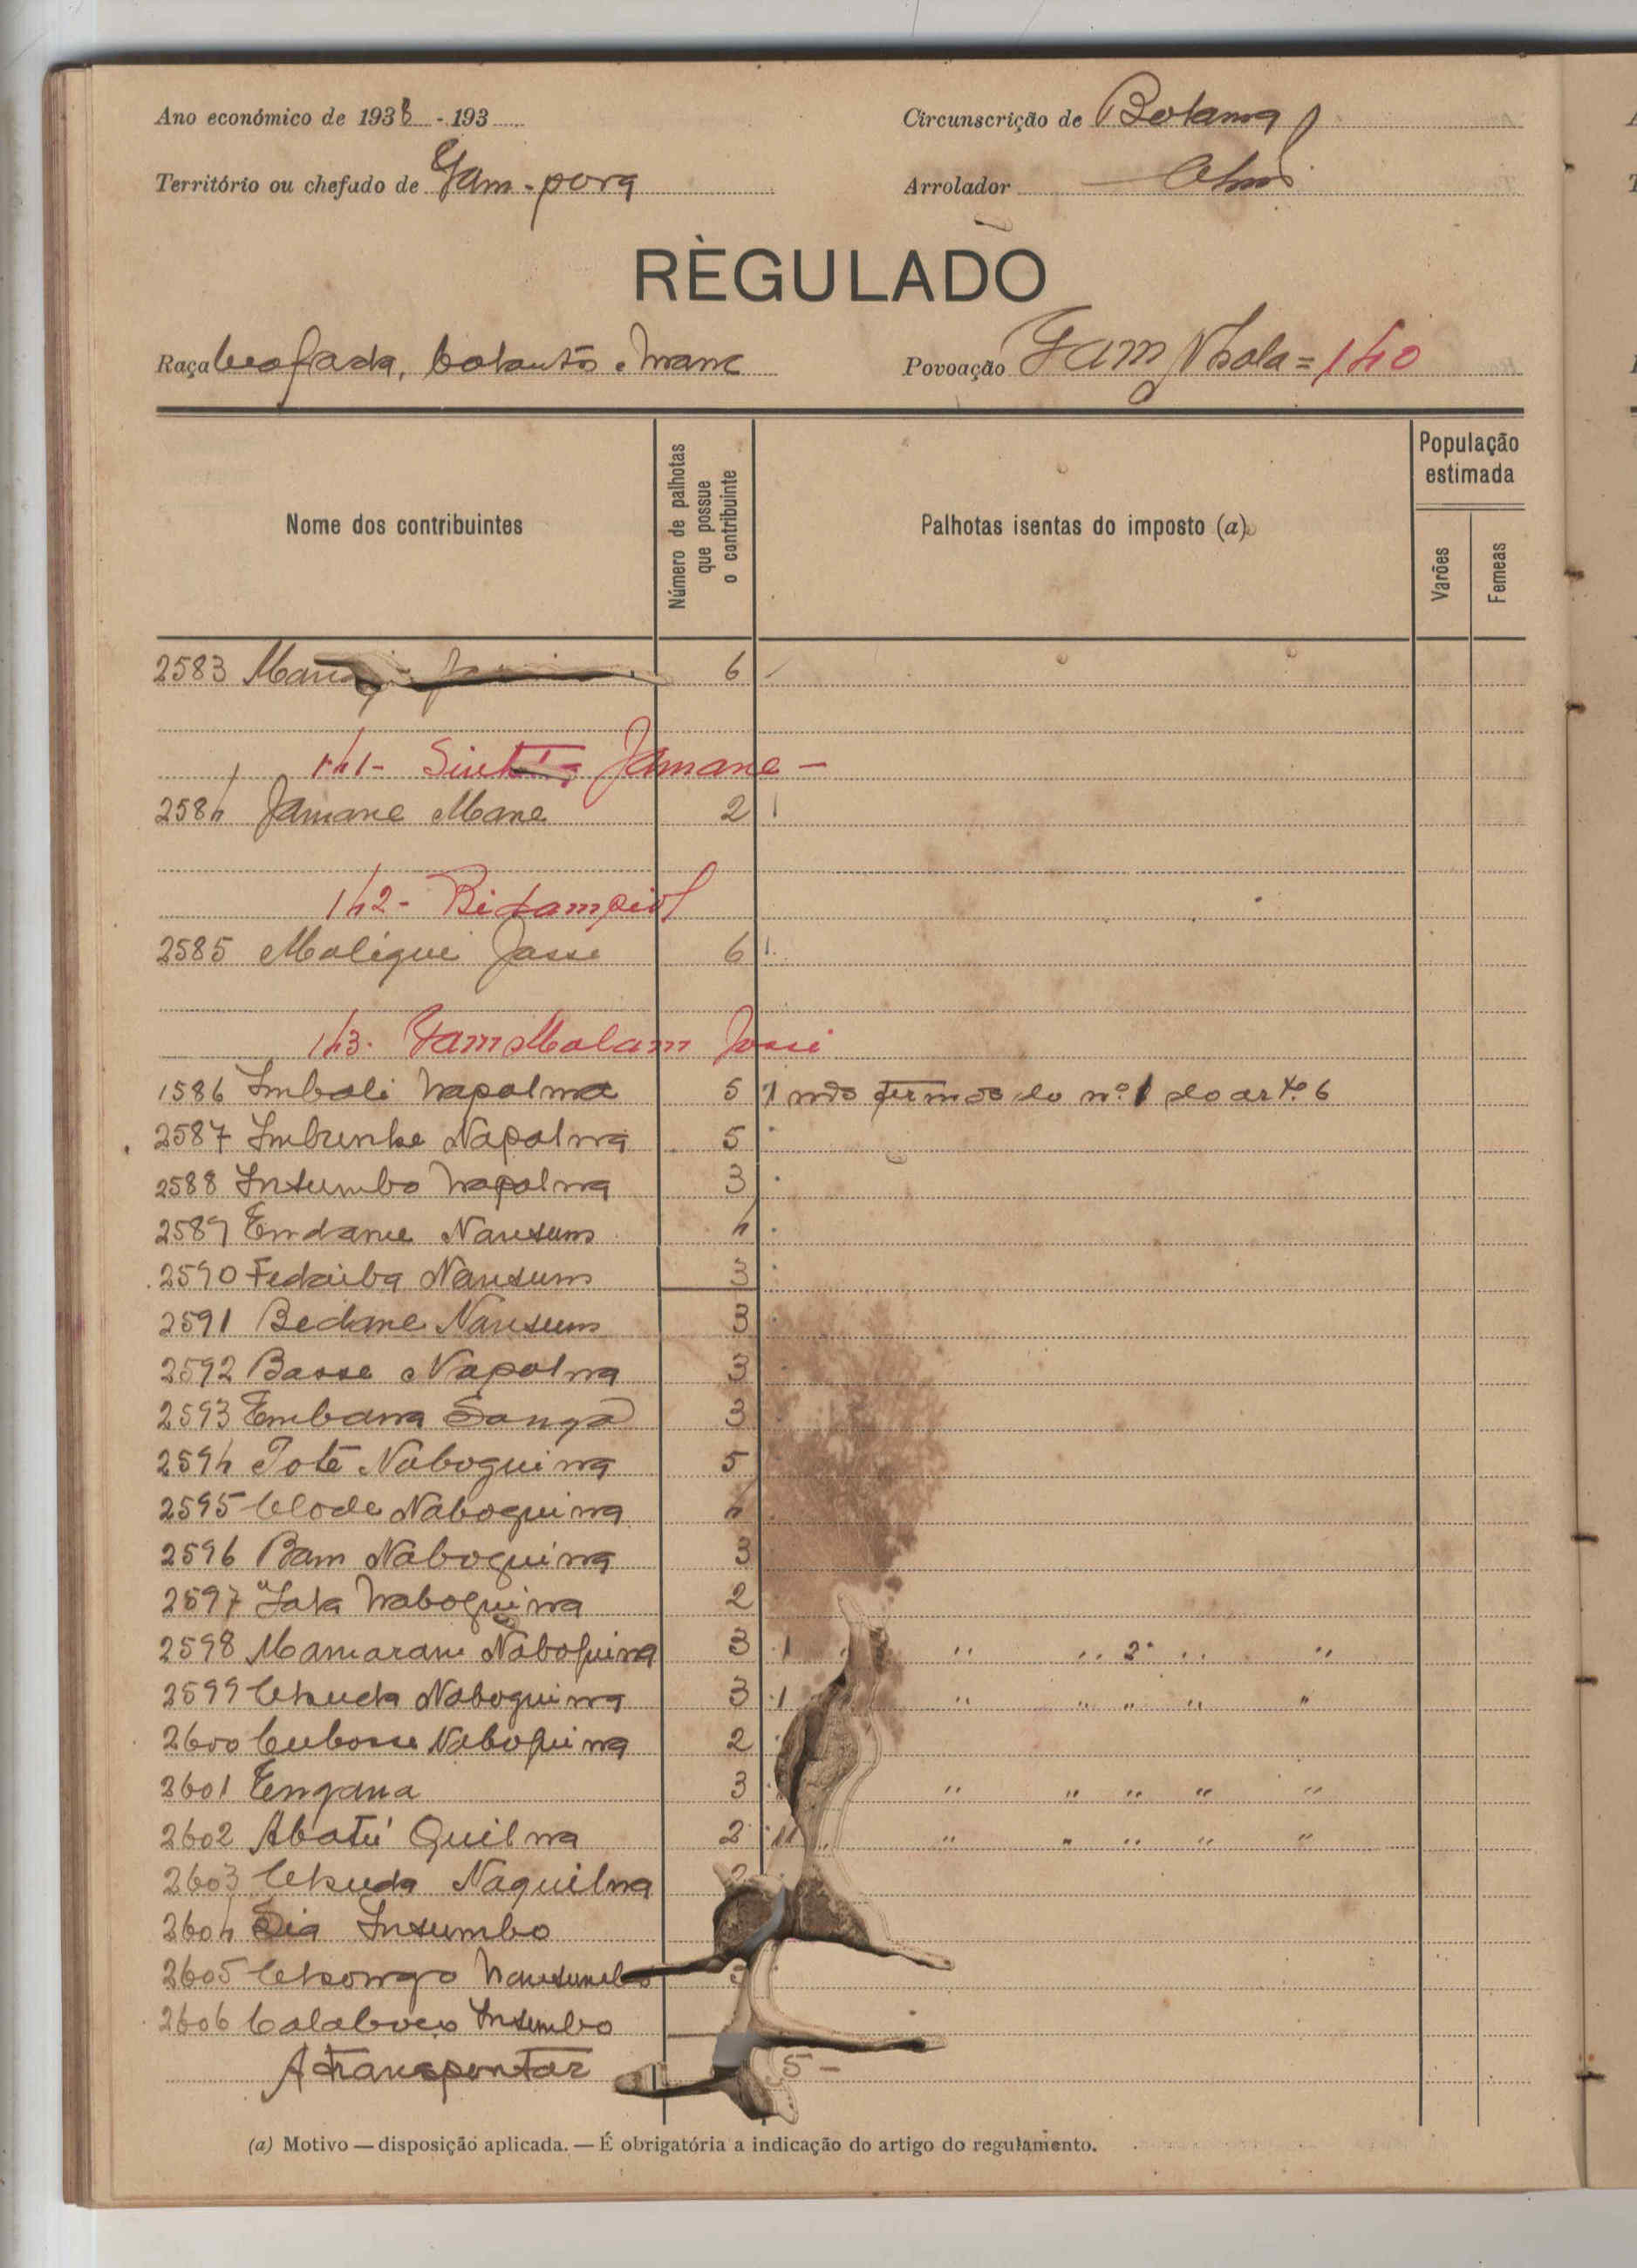 Ano económico de 193 - 193
Circunscrição de Bolama
Território ou chefado de Gam-pora
Arrolador
RÈGULADO
Raça beafada, balantas e manc
Povoação Gam Nhala = 140
Nome dos contribuintes
Número de palhotas que possue o contribuinte
Palhotas isentas do imposto (a)
População estimada
Varões
Femeas
2583 6
141- Jamane -
2584 Jamane Mane 2 1
142-
2585 Maliqui Jassi 6 1
143- Gam Malam Jassi
1586 Imbali Napalna 5 1 nos termos do n.º 1 do art.º 6
2587 Imbunhe Napalna 5
2588 Insumbo Napalna 3
2589 Endane Nansum 4
2590 Fedaiba Nansum 3
2591 Bedane Nansum 3
2592 Basse Napalna 3
2593 Embana Sanga 3
2594 Tote Naboquina 5
2595 Clode Naboquina 4
2596 Bam Naboquina 3
2597 Iala Naboquina 2
2598 Naboquina 3 1 " " 2º " "
2599 Naboquina 3 1 " " " " "
2600 Naboquina 2
2601 Engana 3 " " " " "
2602 Abatú Quilna 2 " " " " "
2603 Naquilna
2604 Sia Insumbo
2605 Nansumbo
2606 Insumbo
A transportar 5 -
(a) Motivo — disposição aplicada. — É obrigatória a indicação do artigo do regulamento.